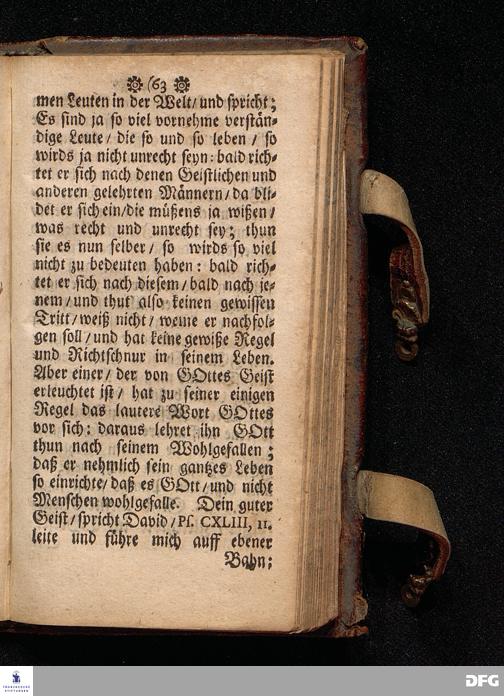 (63
men Leuten in der Welt/ und spricht;
Es sind ja so viel vornehme verstän-
dige Leute/ die so und so leben/ so
wirds ja nicht unrecht seyn: bald rich-
tet er sich nach denen Geistlichen und
anderen gelehrten Männern/ da bli-
det er sich ein/ die müßens ja wißen/
was recht und unrecht sey; thun
sie es nun selber/ so wirds so viel
nicht zu bedeuten haben: bald rich-
tet er sich nach diesem/ bald nach je-
nem/ und thut also keinen gewissen
Tritt/ weiß nicht/ weme er nachfol-
gen soll/ und hat keine gewiße Regel
und Richtschnur in seinem Leben.
Aber einer/ der von GOttes Geist
erleuchtet ist/ hat zu seiner einigen
Regel das lautere Wort GOttes
vor sich: daraus lehret ihn GOtt
thun nach seinem Wohlgefallen;
daß er nehmlich sein gantzes Leben
so einrichte/ daß es GOtt/ und nicht
Menschen wohlgefalle. Dein guter
Geist/ spricht David/ Ps. CXLIII, 11.
leite und führe mich auff ebener
Bahn;
FRANCKESCHE
STIFTUNGEN
DFG